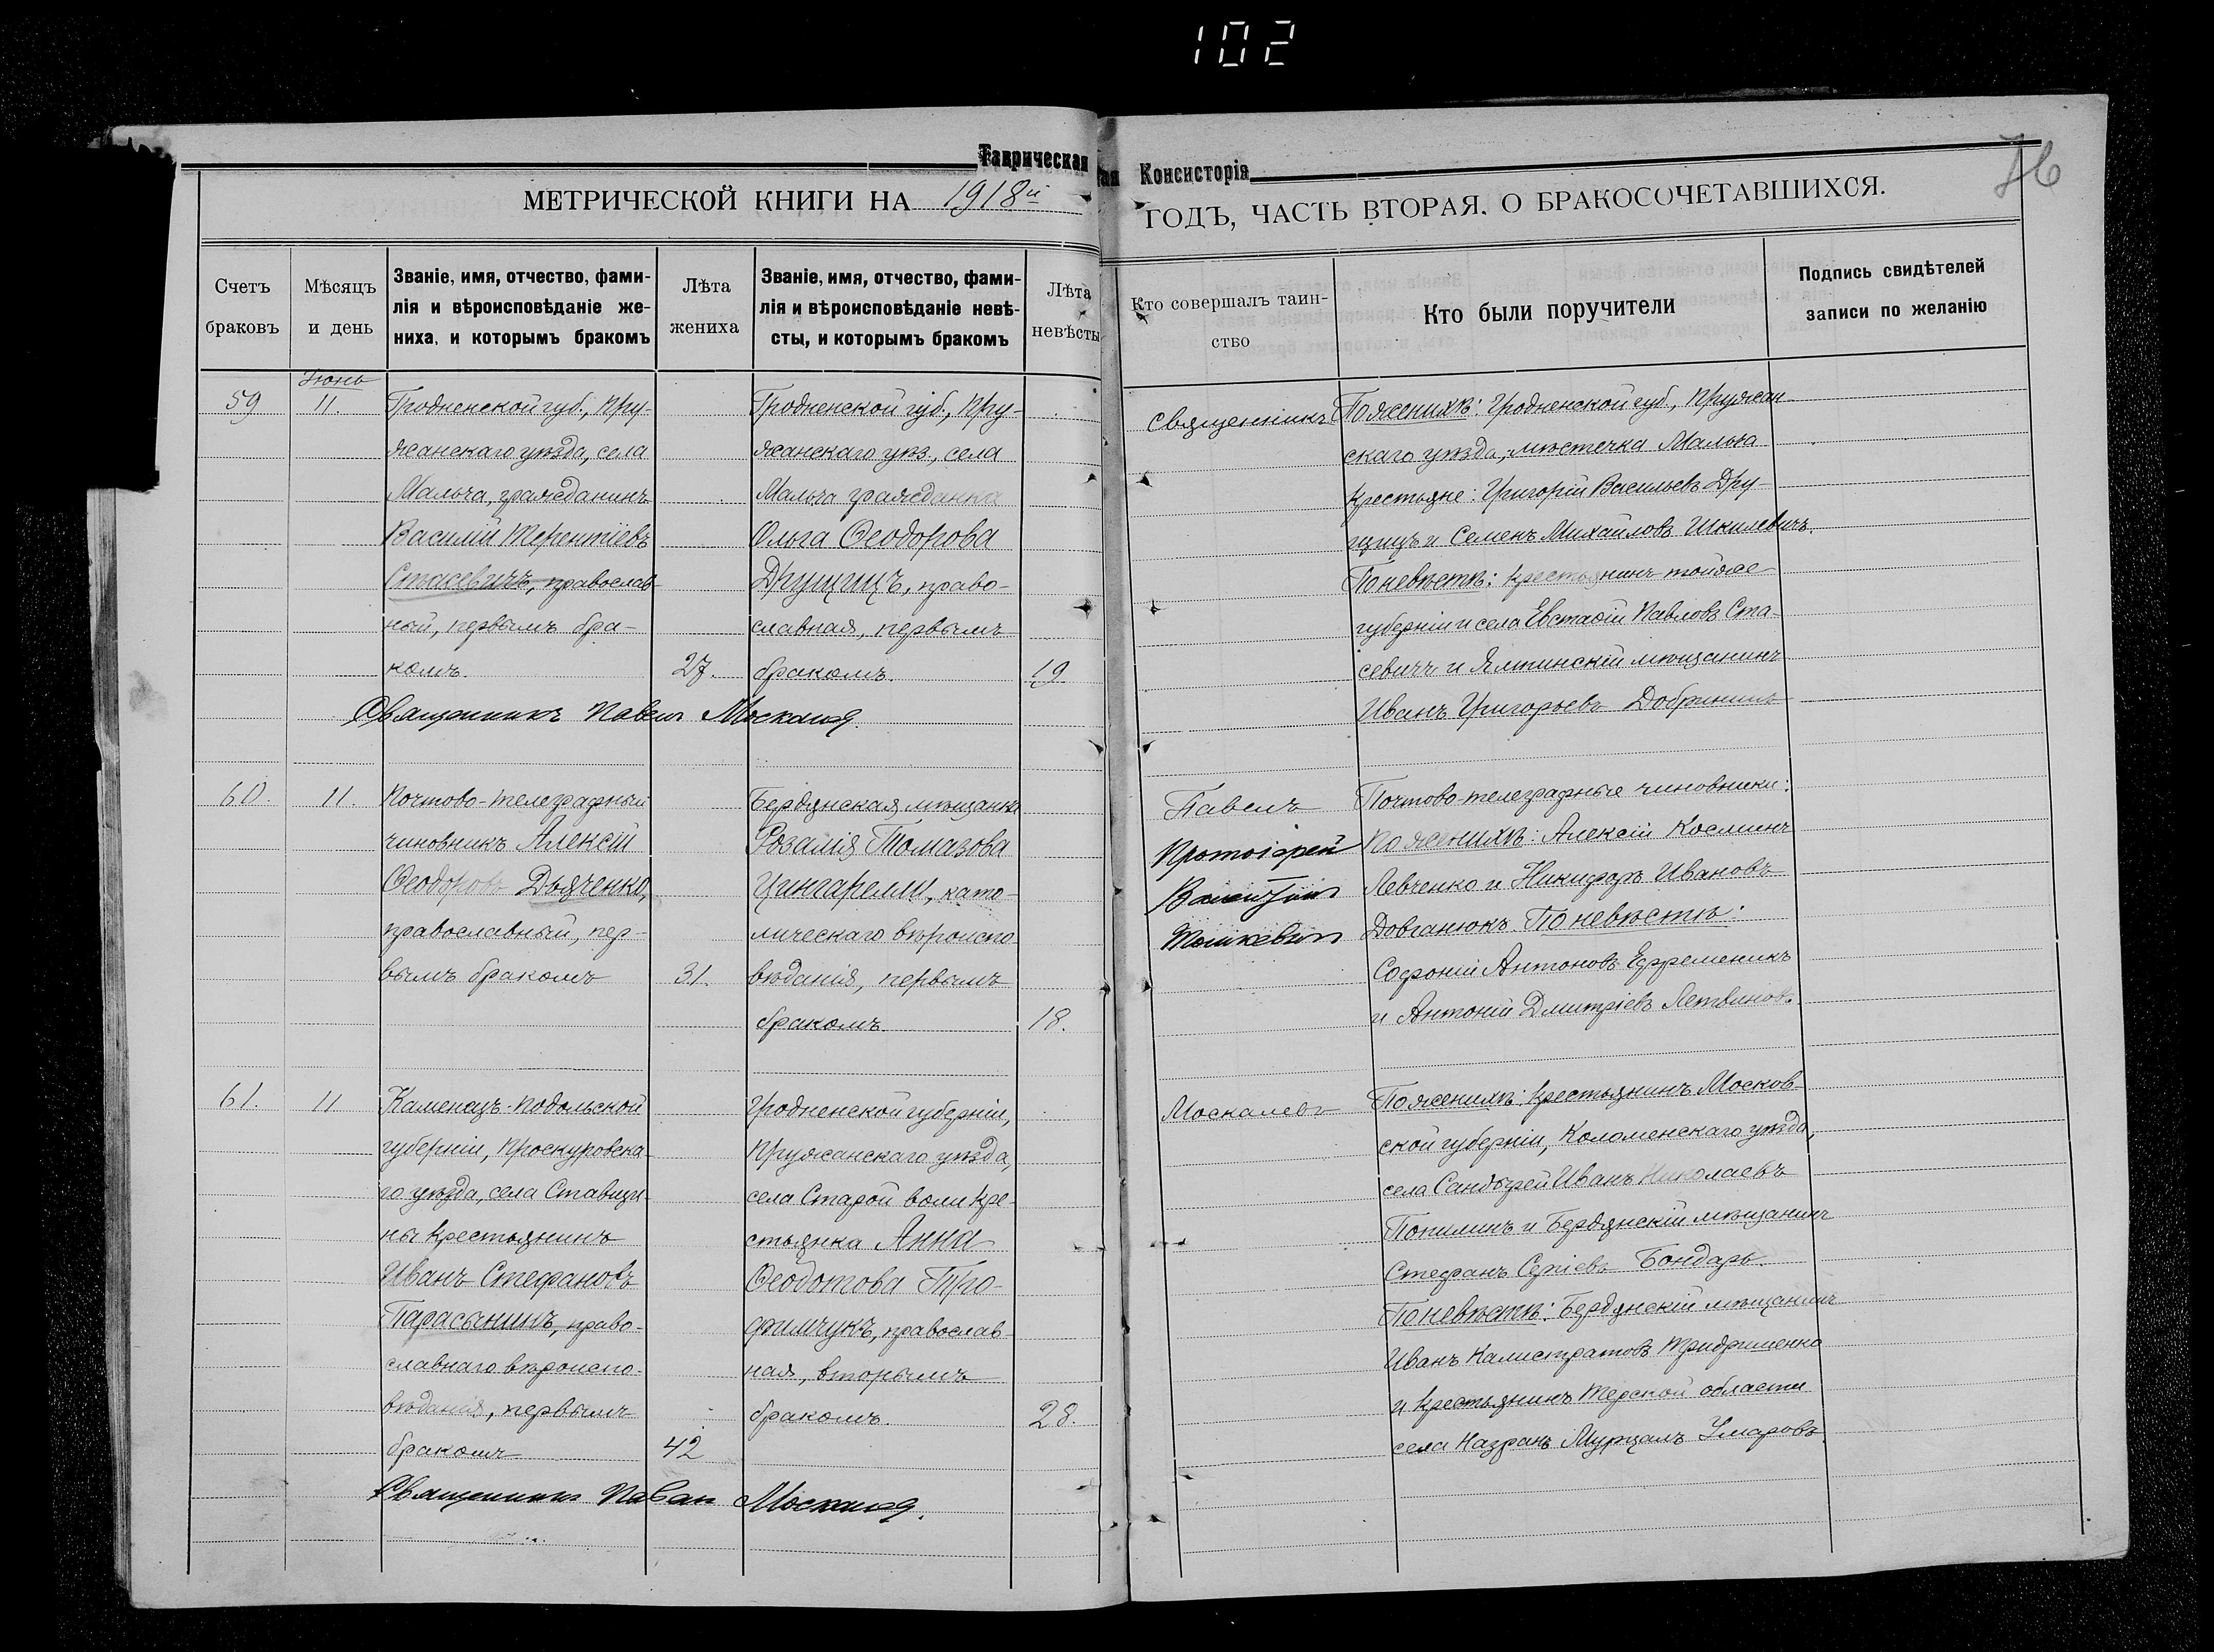 102
Таврическая Консисторія
76
МЕТРИЧЕСКОЙ КНИГИ НА 1918й ГОДЪ, ЧАСТЬ ВТОРАЯ, О БРАКОСОЧЕТАВШИХСЯ.
Счетъ браковъ
Мѣсяцъ и день
Званіе, имя, отчество, фами-
лія и вѣроисповѣданіе же-
ниха, и которымъ бракомъ
Лѣта жениха
Званіе, имя, отчество, фами-
лія и вѣроисповѣданіе невѣ-
сты, и которымъ бракомъ
Лѣта невѣсты
Кто совершалъ таин-
ство
Кто были поручители
Подпись свидѣтелей
записи по желанію
Іюнь
59
11.
Гродненской губ., Пру-
жанскаго уѣзда, села
Мальча, гражданинъ
Василій Терентіевъ
Стасевичъ, православ-
ный, первымъ бра-
комъ.
27.
Гродненской губ., Пру-
жанскаго уѣз., села
Мальча гражданка
Ольга Ѳеодорова
Друщицъ, право-
славная, первымъ
бракомъ.
19
Священникъ
По женихѣ: Гродненской губ., Пружан-
скаго уѣзда, мѣстечка Мальча
крестьяне: Григорій Васильевъ Дру-
щицъ и Семенъ Михайловъ Шкилевичъ.
По невѣстѣ: крестьянинъ той же
губерніи и села Евстафій Павловъ Ста-
севичъ и Ялтинскій мѣщанинъ
Иванъ Григорьевъ Добрининъ
Священникъ Павелъ Москалев
60.
11.
Почтово-телеграфный
чиновникъ Алексій
Ѳеодоровъ Дьяченко,
православный, пер-
вымъ бракомъ
31.
Бердянская мѣщанка
Розалія Томазова
Цингарелли, като-
лическаго вѣроиспо-
вѣданія, первымъ
бракомъ.
18.
Павелъ
Протоіерей
Валентин
Почтово-телеграфные чиновники:
По женихѣ: Алексій Косминъ
Левченко и Никифоръ Ивановъ
Довганюкъ. По невѣстѣ:
Софоній Антоновъ Ефременикъ
и Антоній Дмитріевъ Летвинов.
61.
11
Каменецъ-Подольской
губерніи, Проскуровска-
го уѣзда, села Ставищи-
ны крестьянинъ
Иванъ Стефановъ
Парасынинъ, право-
славнаго вѣроиспо-
вѣданія, первымъ
бракомъ
42
Гродненской губерніи,
Пружанскаго уѣзда,
села Старой воли кре-
стьянка Анна
Ѳеодотова Тро-
фимчукъ, православ-
ная, вторымъ
бракомъ.
28.
Москалевъ
По женихѣ: крестьянинъ Москов-
ской губерніи, Коломенскаго уѣзда,
села Сандырей Иванъ Николаевъ
Попилинъ и Бердянскій мѣщанинъ
Стефанъ Сергіевъ Бондарь.
По невѣстѣ: Бердянскій мѣщанинъ
Иванъ Калистратовъ
и крестьянинъ Терской области
села Назрань Мурцалъ Умаровъ.
Священникъ Павелъ Москалев